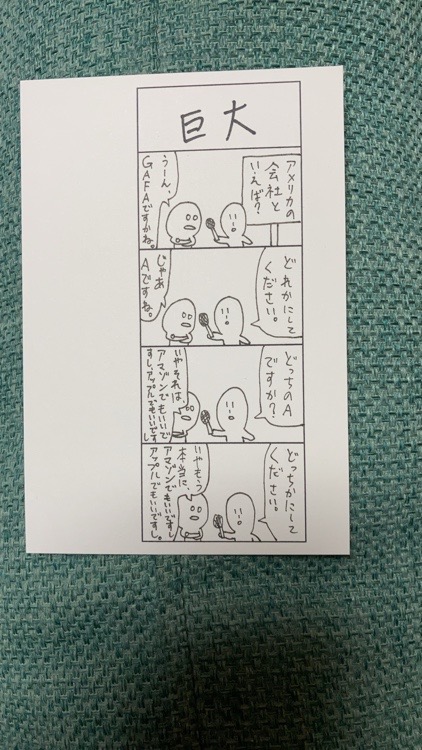 巨大
アメリカの
会社と
いえば？
うーん、
GAFAですかね。
どれかにして
ください。
じゃあ
Aですね。
どっちのA
ですか？
いやそれは、
アマゾンでもいいで
すし、アップルでもいいですし
どっちかにして
ください。
いやもう
本当に、
アマゾンでもいいですし
アップルでもいいですし。